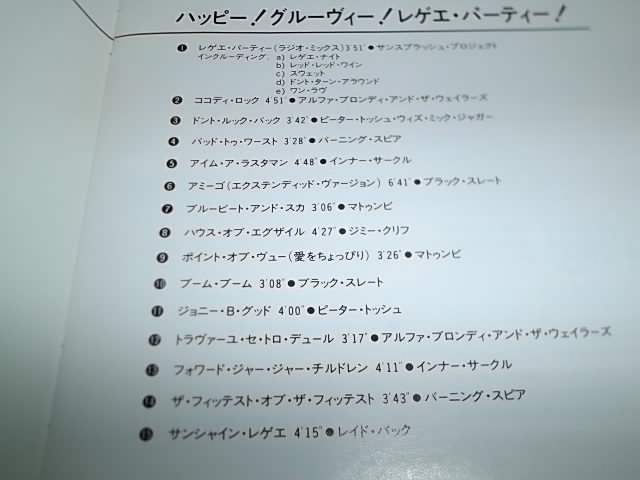 ハッピー！グルーヴィー！レゲエ・パーティー！
❶ レゲエ・パーティー(ラジオ・ミックス)3′51″●サンスプラッシュ・プロジェクト
インクルーディング、a) レゲエ・ナイト
b) レッド・レッド・ワイン
c) スウェット
d) ドント・ターン・アラウンド
e) ワン・ラヴ
❷ ココディ・ロック 4′51″●アルファ・ブロンディ・アンド・ザ・ウェイラーズ
❸ ドント・ルック・バック 3′42″●ピーター・トッシュ・ウィズ・ミック・ジャガー
❹ バッド・トゥ・ワースト 3′28″●バーニング・スピア
❺ アイム・ア・ラスタマン 4′48″●インナー・サークル
❻ アミーゴ(エクステンディッド・ヴァージョン) 6′41″●ブラック・スレート
❼ ブルービート・アンド・スカ 3′06″●マトゥンビ
❽ ハウス・オブ・エグザイル 4′27″●ジミー・クリフ
❾ ポイント・オブ・ヴュー(愛をちょっぴり) 3′26″●マトゥンビ
❿ ブーム・ブーム 3′08″●ブラック・スレート
⓫ ジョニー・B・グッド 4′00″●ピーター・トッシュ
⓬ トラヴァーユ・セ・トロ・デュール 3′17″●アルファ・ブロンディ・アンド・ザ・ウェイラーズ
⓭ フォワード・ジャー・ジャー・チルドレン 4′11″●インナー・サークル
⓮ ザ・フィッテスト・オブ・ザ・フィッテスト 3′43″●バーニング・スピア
⓯ サンシャイン・レゲエ 4′15″●レイド・バック